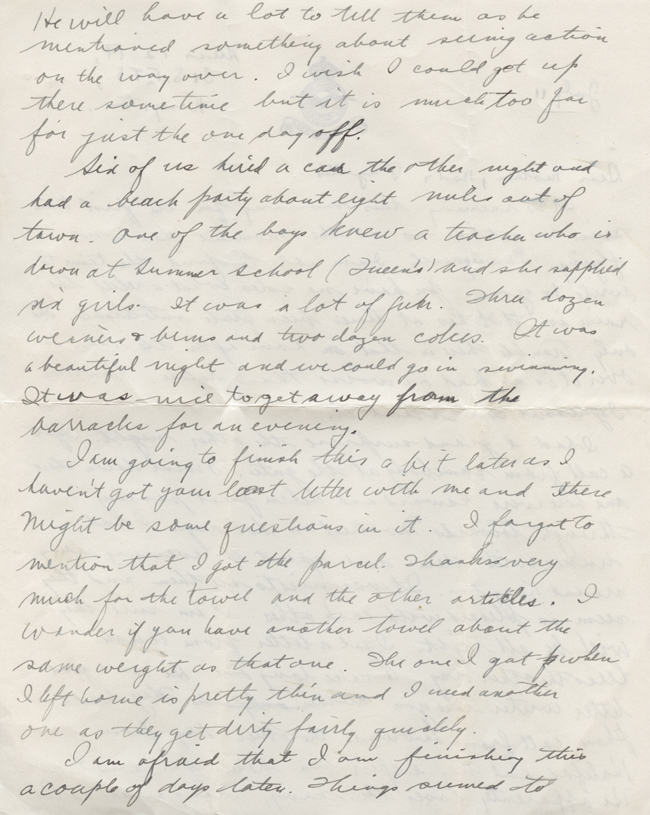 He will have a lot to tell them as he
mentioned something about seeing action
on the way over. I wish I could get up
there sometime but it is much too far
for just the one day off.
Six of us hired a car the other night and
had a beach party about eight miles out of
town. One of the boys knew a teacher who is
down at Summer School (Queen's) and she supplied
six girls. It was a lot of fun. Three dozen
weiners & buns and two dozen cokes. It was
a beautiful night and we could go in swimming.
It was nice to get away from the
barracks for an evening.
I am going to finish this a bit later as I
haven't got your last letter with me and there
might be some questions in it. I forgot to
mention that I got the parcel. Thanks very
much for the towel and the other articles. I
wonder if you have another towel about the
same weight as that one. The one I got when
I left home is pretty thin and I need another
one as they get dirty fairly quickly.
I am afraid that I am finishing this
a couple of days later. Things seemed to